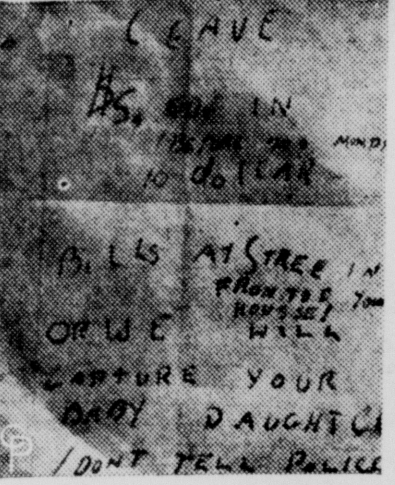 LEAVE
$5,000 IN
MOND
10 doLLAR
BiLLS AT STREE IN
FRONT OF YOU
HOUSE!
OR WE WILL
CAPTURE YOUR
BABY DAUGHTE
/DONT TELL POLICE